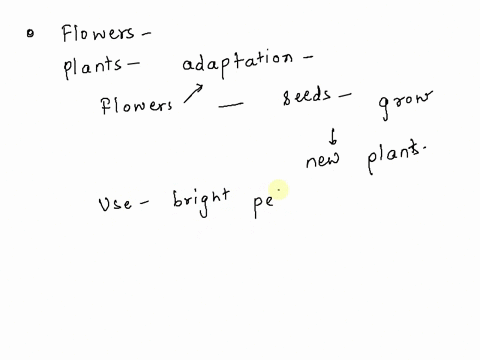 Flowers -
plants - adaptation -
Flowers — seeds - grow
new plants.
Use - bright pe